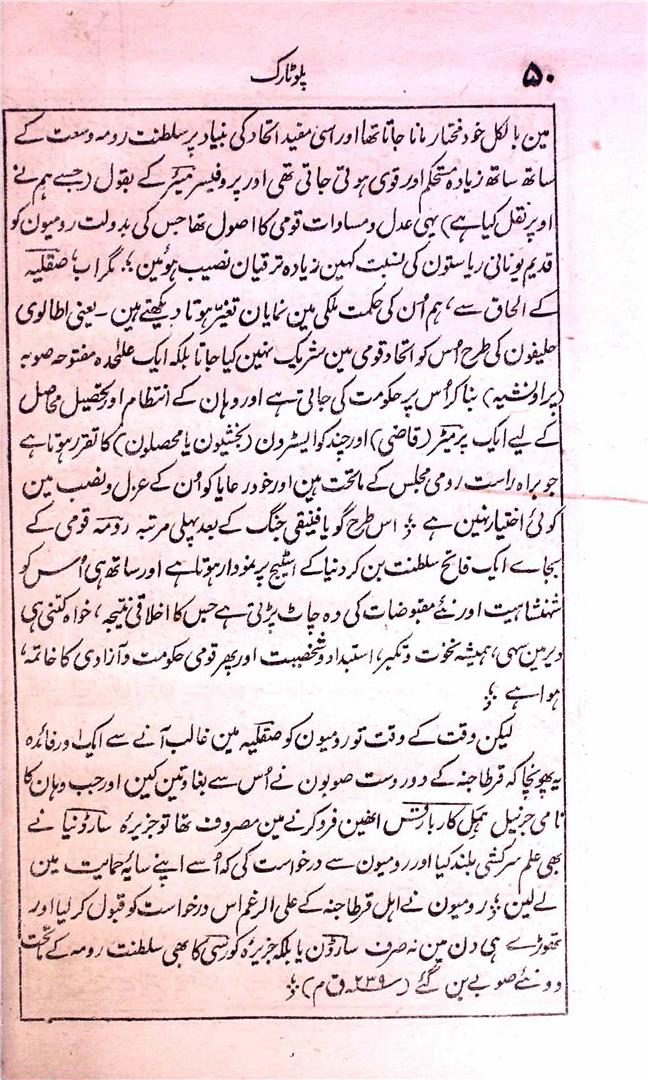 ۵۰
پلوٹارک
مین بالکل خود مختار مانا جاتا تھا اور اسی مفید اتحاد کی بنیاد پر سلطنت رومہ وسعت کے
ساتھ ساتھ زیادہ مستحکم اور قوی ہوتی جاتی تھی اور پروفیسر میئر کے بقول (جسے ہم نے
اوپر نقل کیا ہے) یہی عدل و مساوات قومی کا اصول تھا جس کی بدولت رومیون کو
قدیم یونانی ریاستون کی نسبت کہین زیادہ ترقیان نصیب ہوئین ؛ مگر اب، صقلیہ
کے الحاق سے، ہم اُن کی حکمت ملکی مین نمایان تغیّر ہوتا دیکھتے ہین ۔ یعنی اطالوی
حلیفون کی طرح اُس کو اتحاد قومی مین شریک نہین کیا جاتا بلکہ ایک علٰحدہ مفتوحہ صوبہ
(پراونشیہ) بنا کر اُس پر حکومت کی جاتی ہے اور وہان کے انتظام اور تحصیل محاصل
کے لیے ایک پریٹر (قاضی) اور چند کوایسٹرون (بخشیون یا محصلون) کا تقرر ہوتا ہے
جو براہ راست رومی مجلس کے ماتحت ہین اور خود رعایا کو اُن کے عزل و نصب مین
کوئی اختیار نہین ہے ؛ اس طرح گویا فنیقی جنگ کے بعد پہلی مرتبہ رومہ قومی کے
بجاے ایک فاتح سلطنت بن کر دنیا کے اسٹیج پر نمودار ہوتا ہے اور ساتھ ہی اُس کو
شہنشاہیت اور نئے مقبوضات کی وہ چاٹ پڑتی ہے جس کا اخلاقی نتیجہ، خواہ کتنی ہی
دیر مین سہی، ہمیشہ نخوت و تکبر، استبداد و شخصیت اور پھر قومی حکومت و آزادی کا خاتمہ،
ہوا ہے ؛
لیکن وقت کے وقت تو رومیون کو صقلیہ مین غالب آنے سے ایک اور فائدہ
یہ پہونچا کہ قرطاجنہ کے دور دست صوبون نے اُس سے بغاوتین کین اور جب وہان کا
نامی جرنیل ہمِلکار بارقس انھین فرو کرنے مین مصروف تھا تو جزیرہ سارڈنیا نے
بھی علم سرکشی بلند کیا اور رومیون سے درخواست کی کہ اُسے اپنے سایۂ حمایت مین
لے لین ؛ رومیون نے اہل قرطاجنہ کے علی الرغم اس درخواست کو قبول کر لیا اور
تھوڑے ہی دن مین نہ صرف سارڈن یا بلکہ جزیرہ کورسی کا بھی سلطنت رومہ کے ماتحت
دو نئے صوبے بن گئے (۲۳۹ ق م) ؛